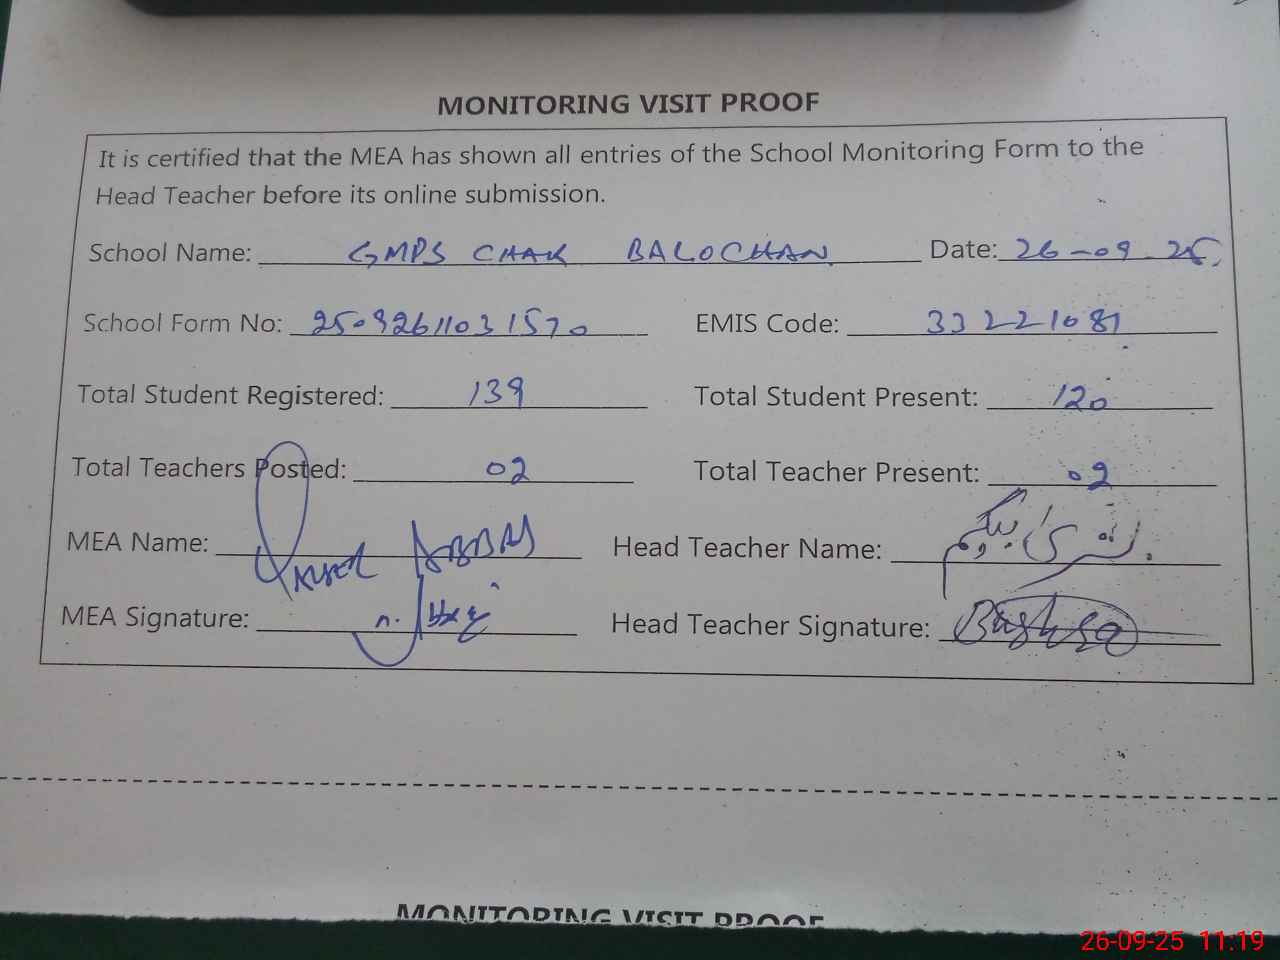 MONITORING VISIT PROOF
It is certified that the MEA has shown all entries of the School Monitoring Form to the
Head Teacher before its online submission.
School Name: GMPS CHAK BALOCHAN Date: 26-09-25.
School Form No: 25092611031570 EMIS Code: 33221081
Total Student Registered: 139 Total Student Present: 120
Total Teachers Posted: 02 Total Teacher Present: 02
MEA Name: ABBAS Head Teacher Name: بشریٰ بیگم
MEA Signature: Head Teacher Signature: Bushra
MONITORING VISIT PROOF
26-09-25 11:19